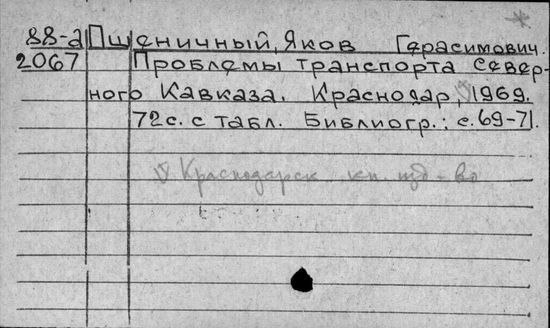 88-а Пшеничный, Яков Герасимович.
2067 Проблемы транспорта Север-
ного Кавказа. Краснодар, 1969.
72 с. с табл. Библиогр.: с. 69-71.
Краснодарск кн. изд-во